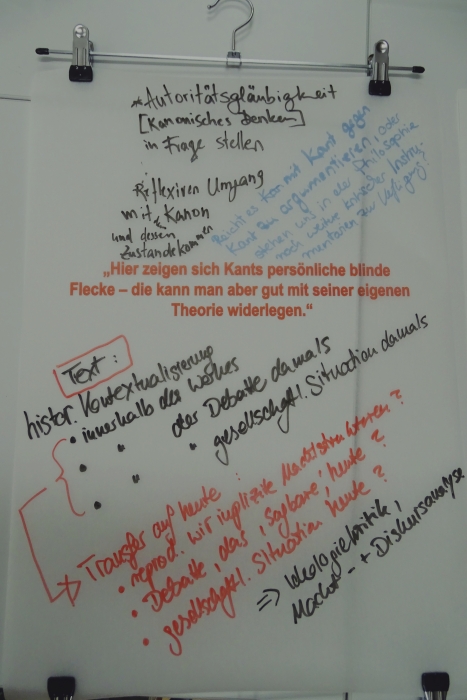 * Autoritätsgläubigkeit
[Kanonisches Denken]
in Frage stellen
Reflexiven Umgang
mit Kanon
und dessen
Zustandekommen
Reicht es Kan mit Kant gegen
Kant zu argumentieren, oder
stehen uns in der Philosophie
noch weitere kritische Instru-
mentarien zur Verfügung?
„Hier zeigen sich Kants persönliche blinde
Flecke – die kann man aber gut mit seiner eigenen
Theorie widerlegen.“
Text:
histor. Kontextualisierung
• innerhalb des Werkes
• " der Debatte damals
• " gesellschaftl. Situation damals
Transfer auf heute:
• reprod. wir implizite Machtstrukturen?
• Debatte, das 'sagbare' heute?
• gesellschaftl. Situation heute?
=> Ideologiekritik,
Macht- + Diskursanalyse